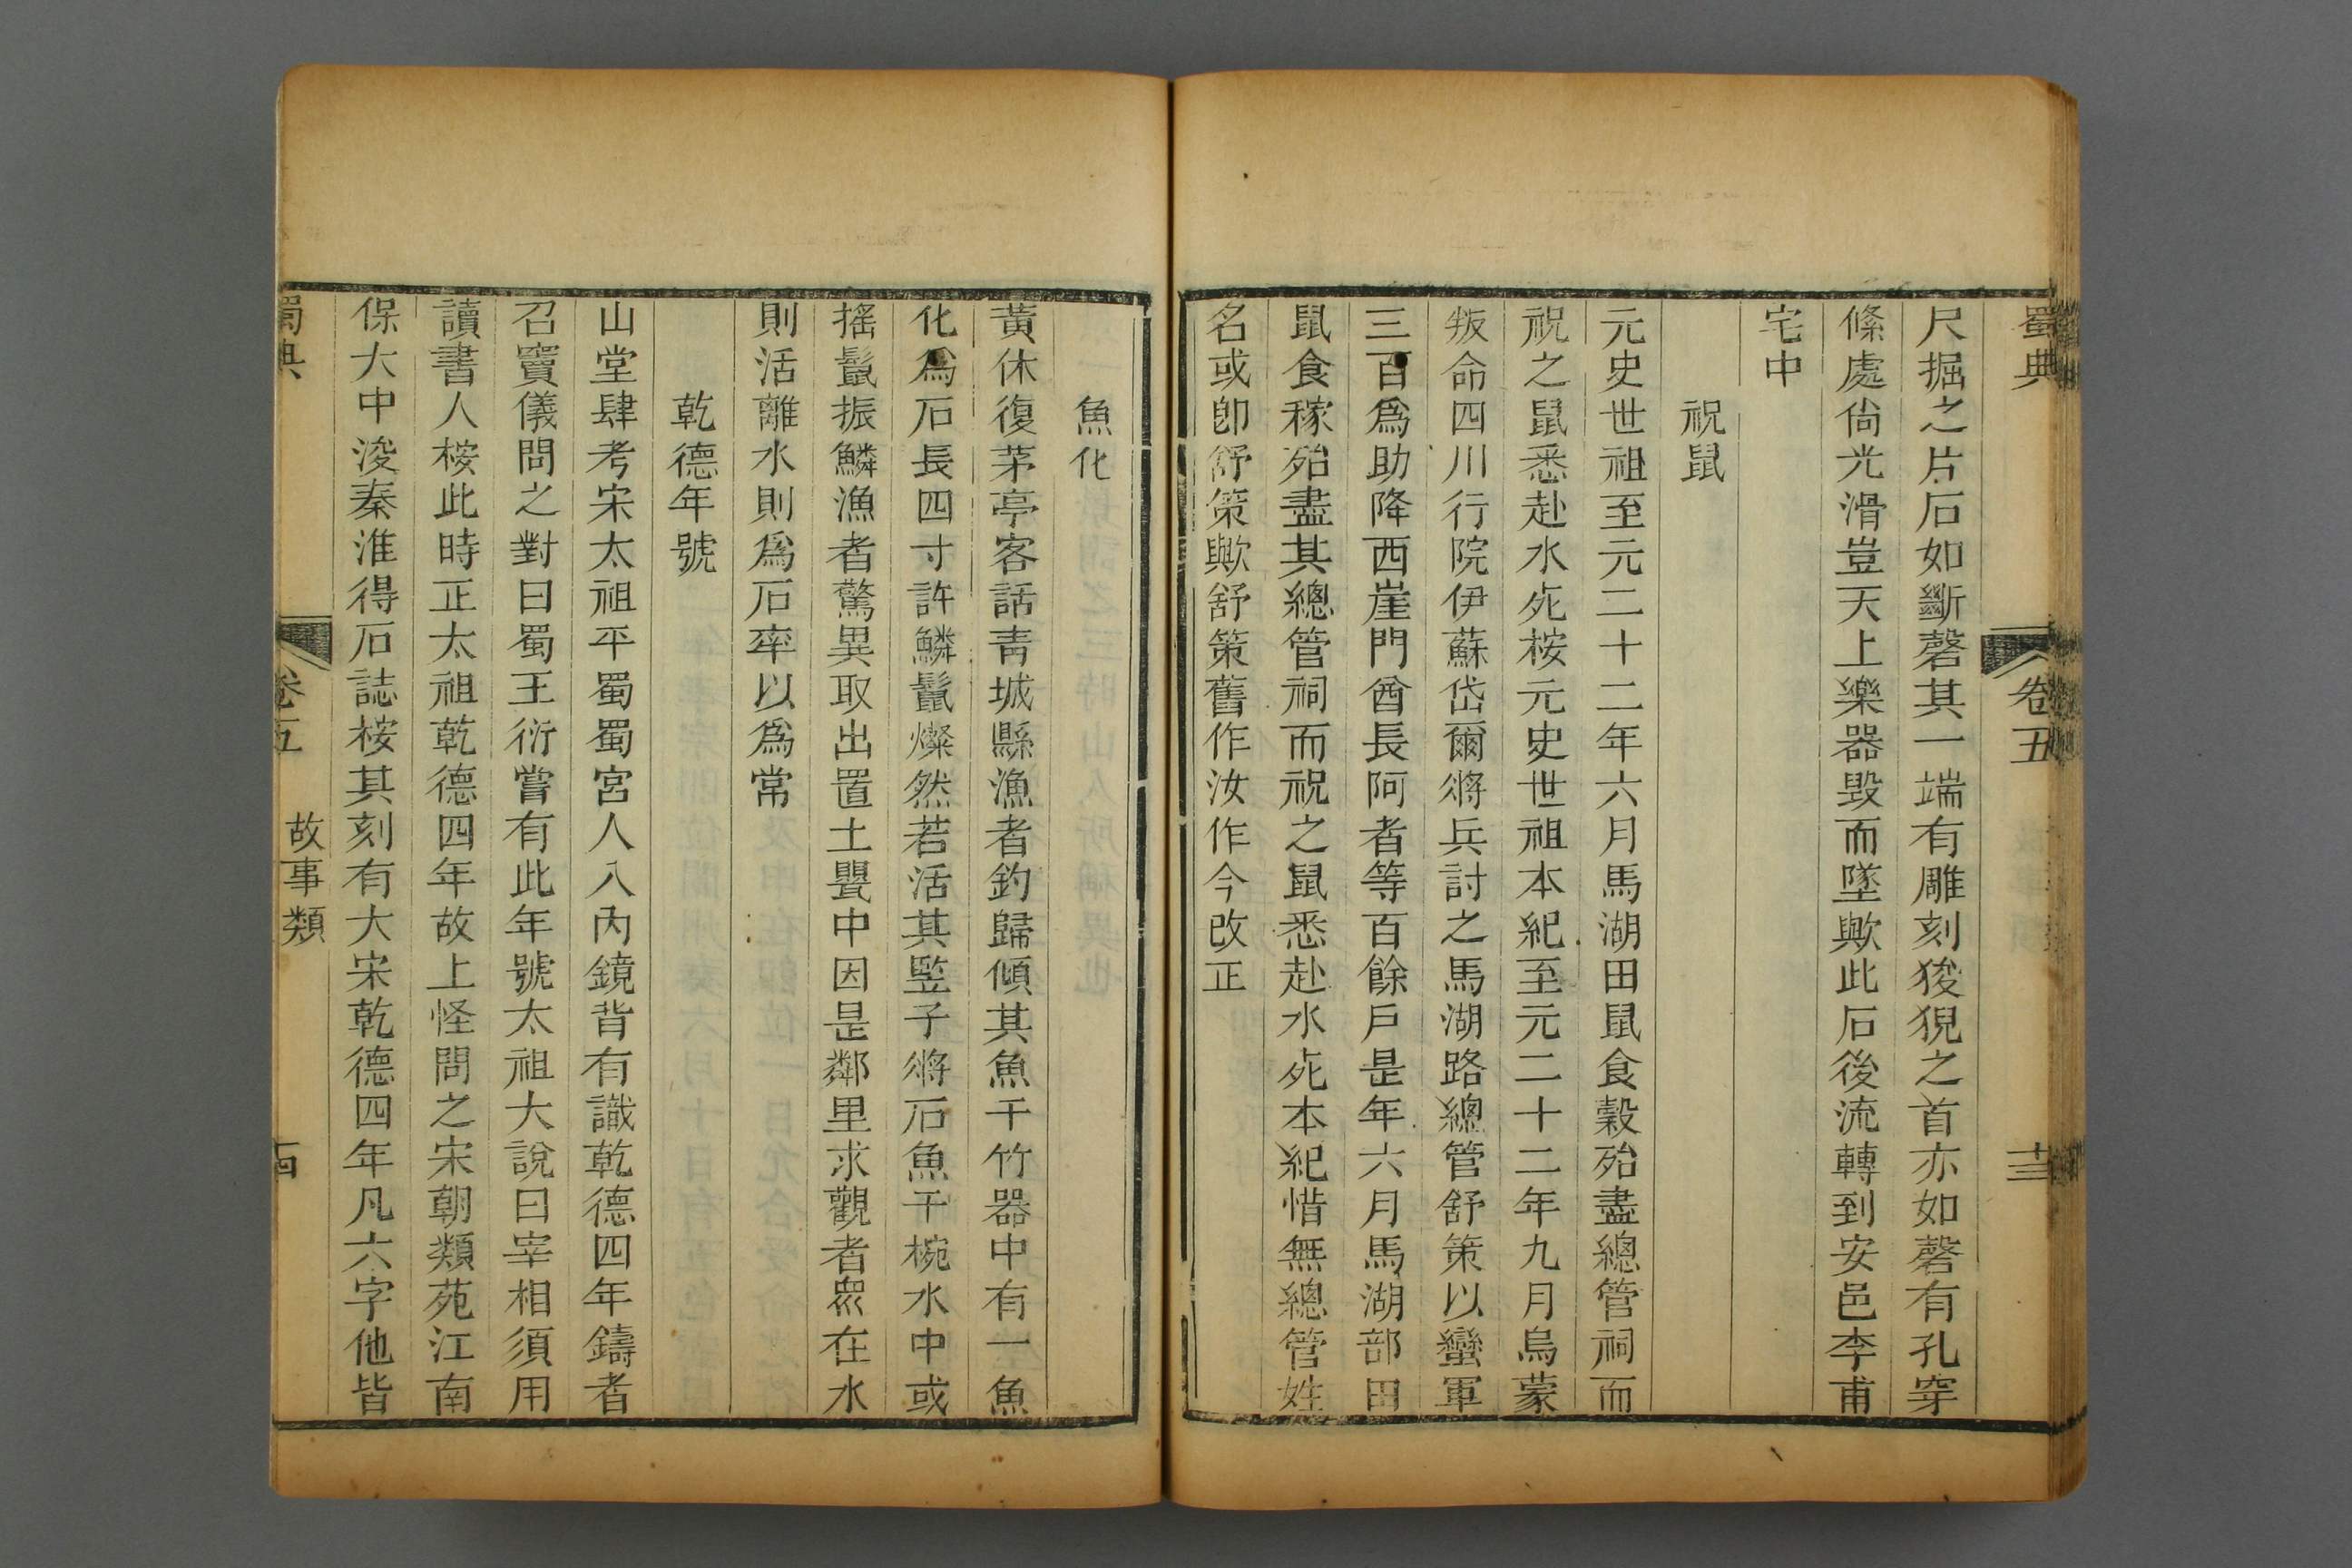 蜀典
卷五
十三
尺掘之片石如斷磬其一端有雕刻狻猊之首亦如磬有孔穿
絛處尙光滑豈天上樂器毀而墜歟此石後流轉到安邑李甫
宅中
祝鼠
元史世祖至元二十二年六月馬湖田鼠食穀殆盡總管祠而
祝之鼠悉赴水死桉元史世祖本紀至元二十二年九月烏蒙
叛命四川行院伊蘇岱爾將兵討之馬湖路總管舒策以蠻軍
三百爲助降西崖門酋長阿者等百餘戶是年六月馬湖部田
鼠食稼殆盡其總管祠而祝之鼠悉赴水死本紀惜無總管姓
名或卽舒策歟舒策舊作汝作今改正
魚化
黃休復茅亭客話靑城縣漁者釣歸傾其魚于竹器中有一魚
化爲石長四寸許鱗鬣燦然若活其豎子將石魚于椀水中或
搖鬣振鱗漁者驚異取出置土甖中因是鄰里求觀者衆在水
則活離水則爲石率以爲常
乾德年號
山堂肆考宋太祖平蜀蜀宮人入內鏡背有識乾德四年鑄者
召竇儀問之對曰蜀王衍嘗有此年號太祖大說曰宰相須用
讀書人桉此時正太祖乾德四年故上怪問之宋朝類苑江南
保大中浚秦淮得石誌桉其刻有大宋乾德四年凡六字他皆
蜀典
卷五
故事類